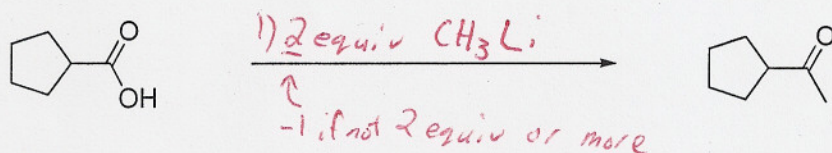 1) 2 equiv CH3Li
-1 if not 2 equiv or more
O
OH
O